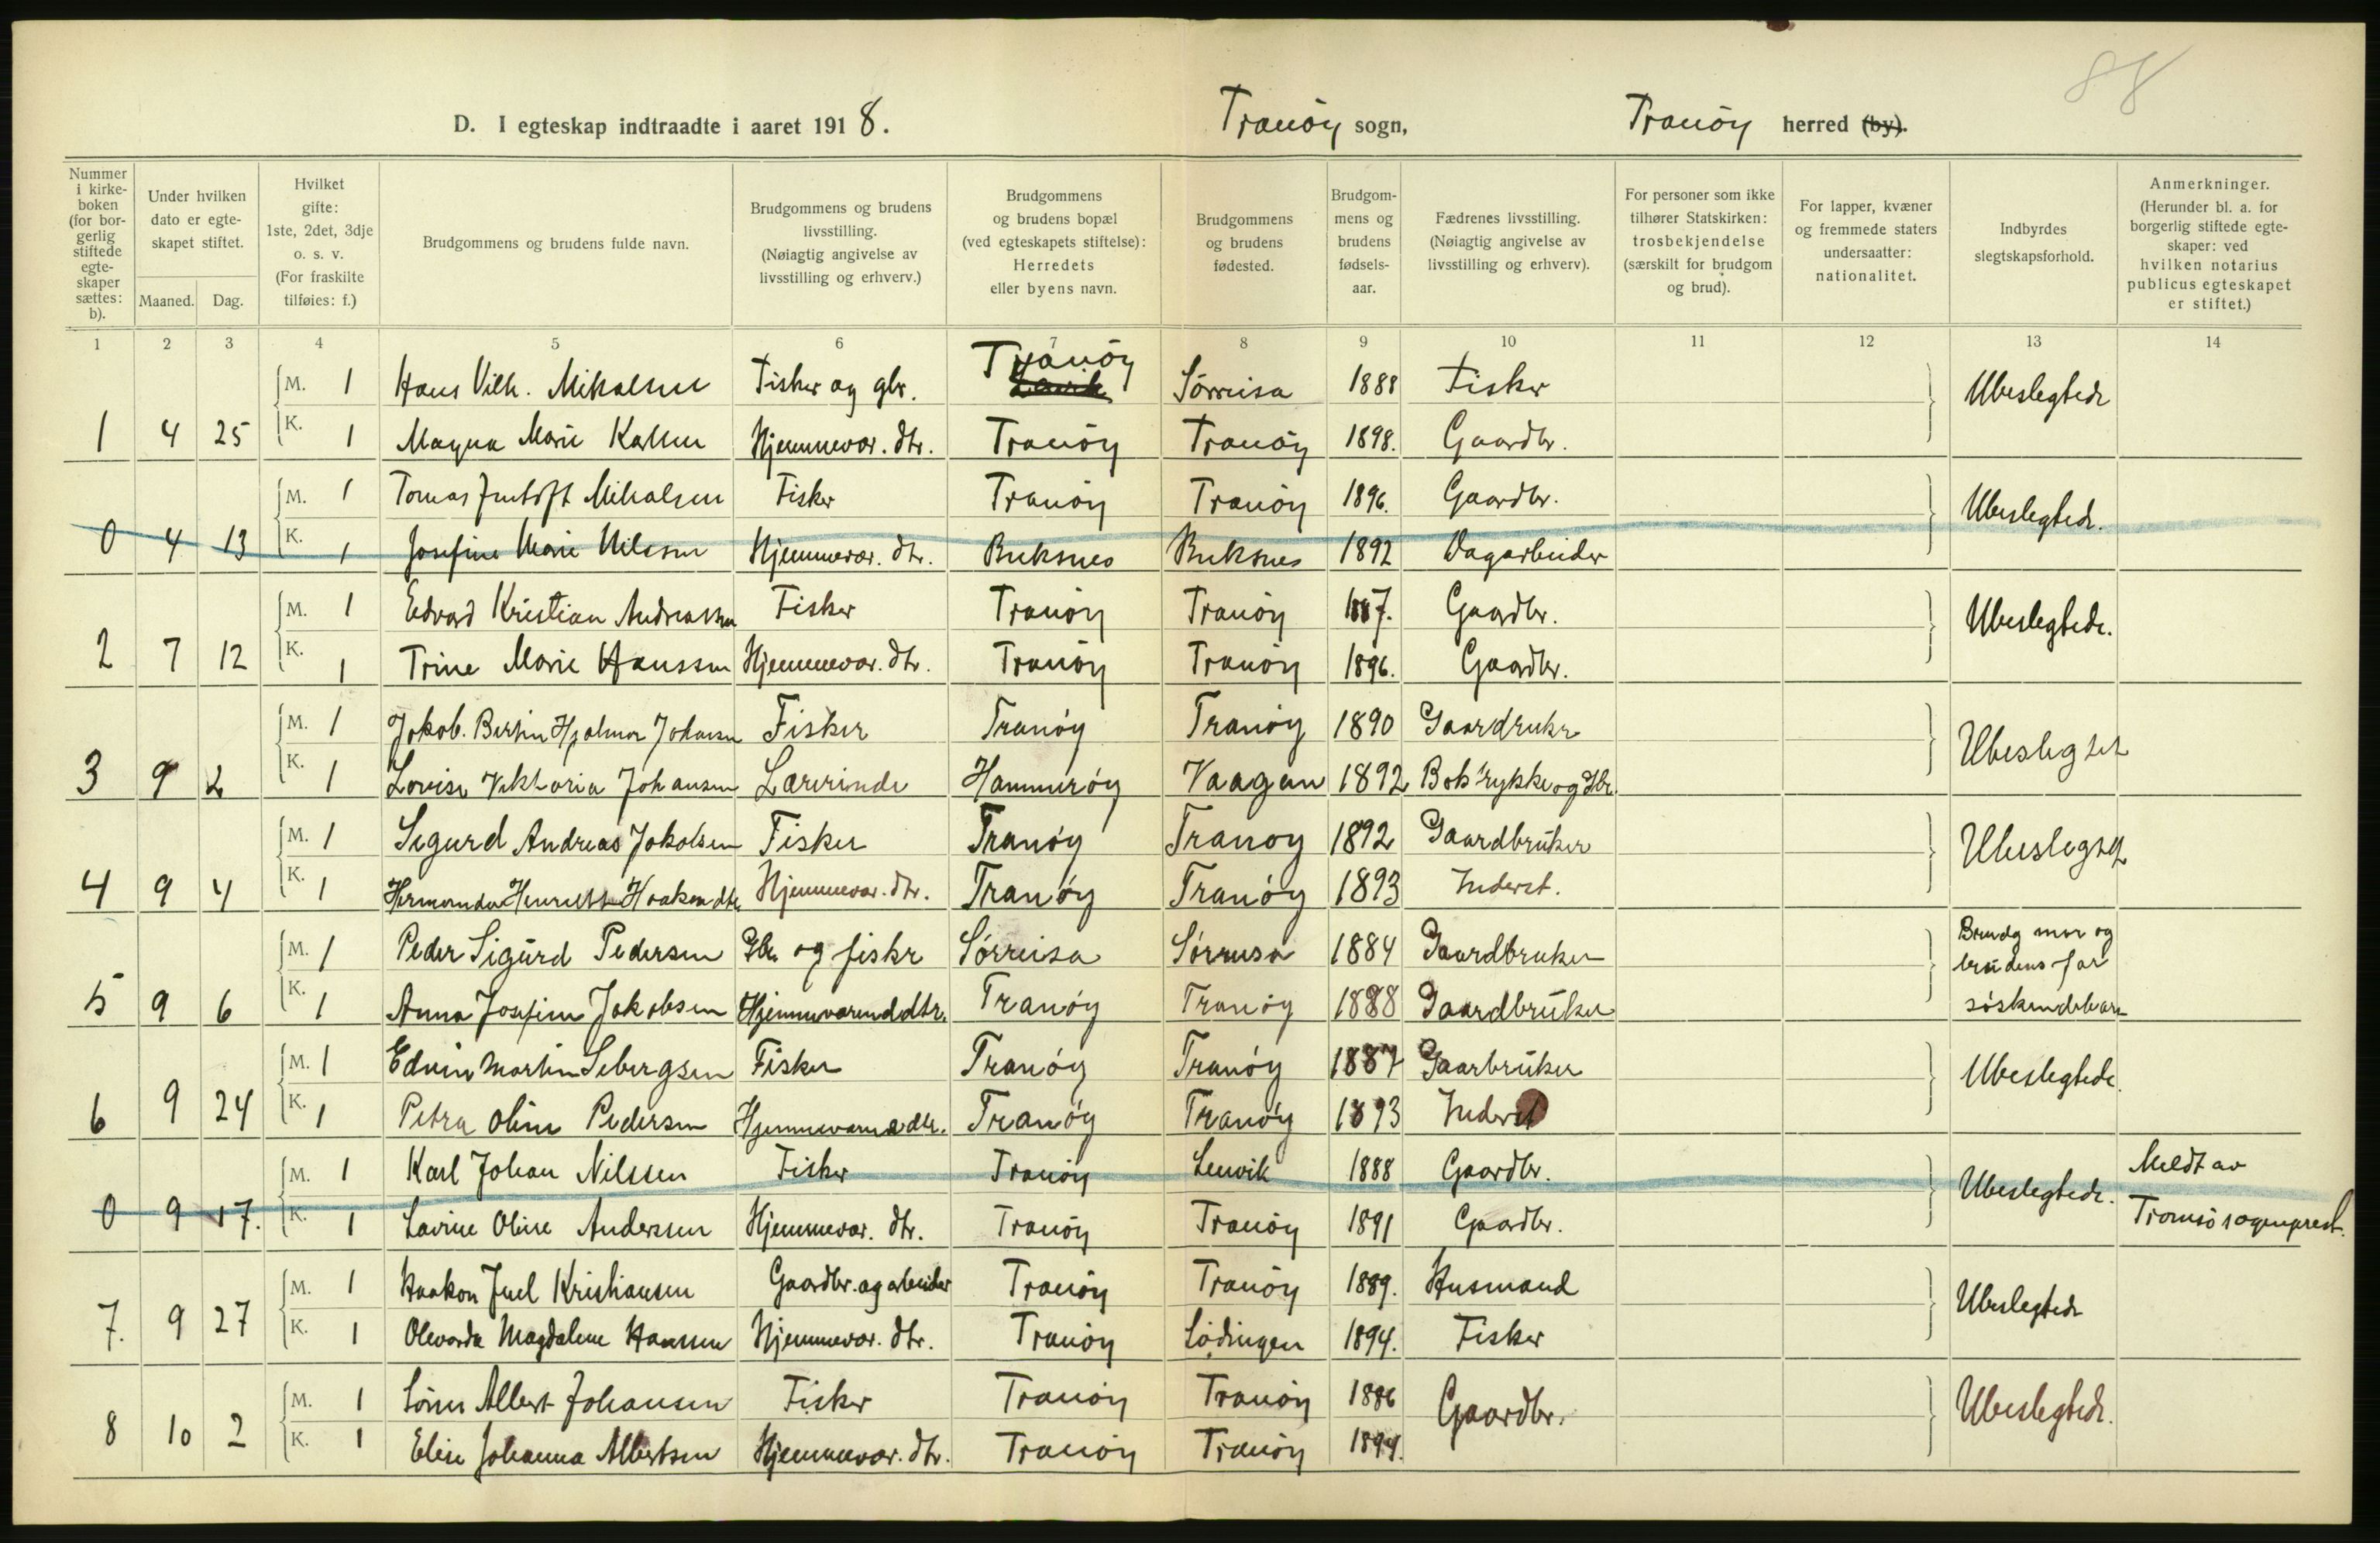 88
D. I egteskap indtraadte i aaret 1918. Tranöy sogn, Tranöy herred (by).
Nummer i kirkeboken (for borgerlig stiftede egteskaper sættes: b).
Under hvilken dato er egteskapet stiftet.
Maaned. Dag.
Hvilket gifte: 1ste, 2det, 3dje o. s. v. (For fraskilte tilføies: f.)
Brudgommens og brudens fulde navn.
Brudgommens og brudens livsstilling. (Nøiagtig angivelse av livsstilling og erhverv.)
Brudgommens og brudens bopæl (ved egteskapets stiftelse): Herredets eller byens navn.
Brudgommens og brudens fødested.
Brudgommens og brudens fødselsaar.
Fædrenes livsstilling. (Nøiagtig angivelse av livsstilling og erhverv).
For personer som ikke tilhører Statskirken: trosbekjendelse (særskilt for brudgom og brud).
For lapper, kvæner og fremmede staters undersaatter: nationalitet.
Indbyrdes slegtskapsforhold.
Anmerkninger. (Herunder bl. a. for borgerlig stiftede egteskaper: ved hvilken notarius publicus egteskapet er stiftet.)
1 2 3 4 5 6 7 8 9 10 11 12 13 14
M. 1 Hans Vilh. Mikalsen Fisker og gbr. Tranöy Sörreisa 1888 Fisker Ubeslegtede
1 4 25 K. 1 Magna Marie Karlsen Hjemmevær. dtr. Tranöy Tranöy 1898. Gaardbr.
M. 1 Tomas Mikalsen Fisker Tranöy Tranöy 1896. Gaardbr. Ubeslegtede.
0 4 13 K. 1 Josefine Marie Nilssen Hjemmevær. dtr. Buksnes Buksnes 1892 Dagarbeider
M. 1 Edvard Kristian Andreassen Fisker Tranöy Tranöy 1887. Gaardbr. Ubeslegtede.
2 7 12 K. 1 Trine Marie Hanssen Hjemmevær. dtr. Tranöy Tranöy 1896. Gaardbr.
M. 1 Jakob. Bertin Hjalmar Johansen Fisker Tranöy Tranöy 1890 Ubeslegtet
3 9 2 K. 1 Lovise Viktoria Johansen Lærerinde Hammeröy Vaagan 1892 Boktrykker og Gbr.
M. 1 Sigurd Andreas Jakobsen Fisker Tranöy Tranoy 1892 Gaardbrúker
4 9 4 K. 1 Henriette Haakondtr Hjemmevær. dtr. Tranöy Tranöy 1893 Inderst.
M. 1 Peder Sigúrd Pedersen Gbr. og fisker Sörreisa Sörreisa 1884 Gaardbruker Brudg mor og
brúdens far
5 9 6 K. 1 Anna Josefine Jakobsen Hjemmeværenddtr. Tranöy Tranöy 1888 Gaardbrúker söskendebarn
M. 1 Edvin Martin Sebergsen Fisker Tranöy Tranöy 1887 Gaarbrúker Ubeslegtede.
6 9 24 K. 1 Petra Oline Pedersen Tranöy Tranöy 1893 Inderst
M. 1 Karl Johan Nilssen Fisker Tranöy Lenvik 1888 Gaardbr. Ubeslegtede. Meldt av
0 9 17. K. 1 Lavine Oline Anderssen Hjemmevær. dtr. Tranöy Tranöy 1891 Gaardbr. Tromsö sogneprest.
M. 1 Haakon Juel Kristiansen Gaardbr. og arbeider Tranöy Tranöy 1889. Husmand Ubeslegtede
7. 9 27 K. 1 Olevarda Magdalene Hanssen Hjemmevær. dtr. Tranöy Lödingen 1894. Fisker
M. 1 Sören Albert Johansen Fisker Tranöy Tranöy 1886 Gaardbr. Ubeslegtede.
8 10 2 K. 1 Elise Johanna Albertsen Hjemmevær. dtr. Tranöy Tranöy 1894.